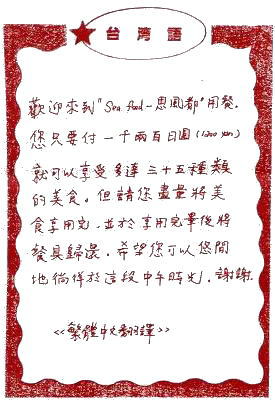 台湾語
歡迎來到"Sea food-恩風都"用餐.
您只要付一千兩百日圓(1200 yen)
就可以享受多達三十五種類
的美食。但請您盡量將美
食享用完,並於享用完畢後將
餐具歸還.希望您可以悠閒
地徜徉於這段中午時光.謝謝.
<<繁體中文翻譯>>